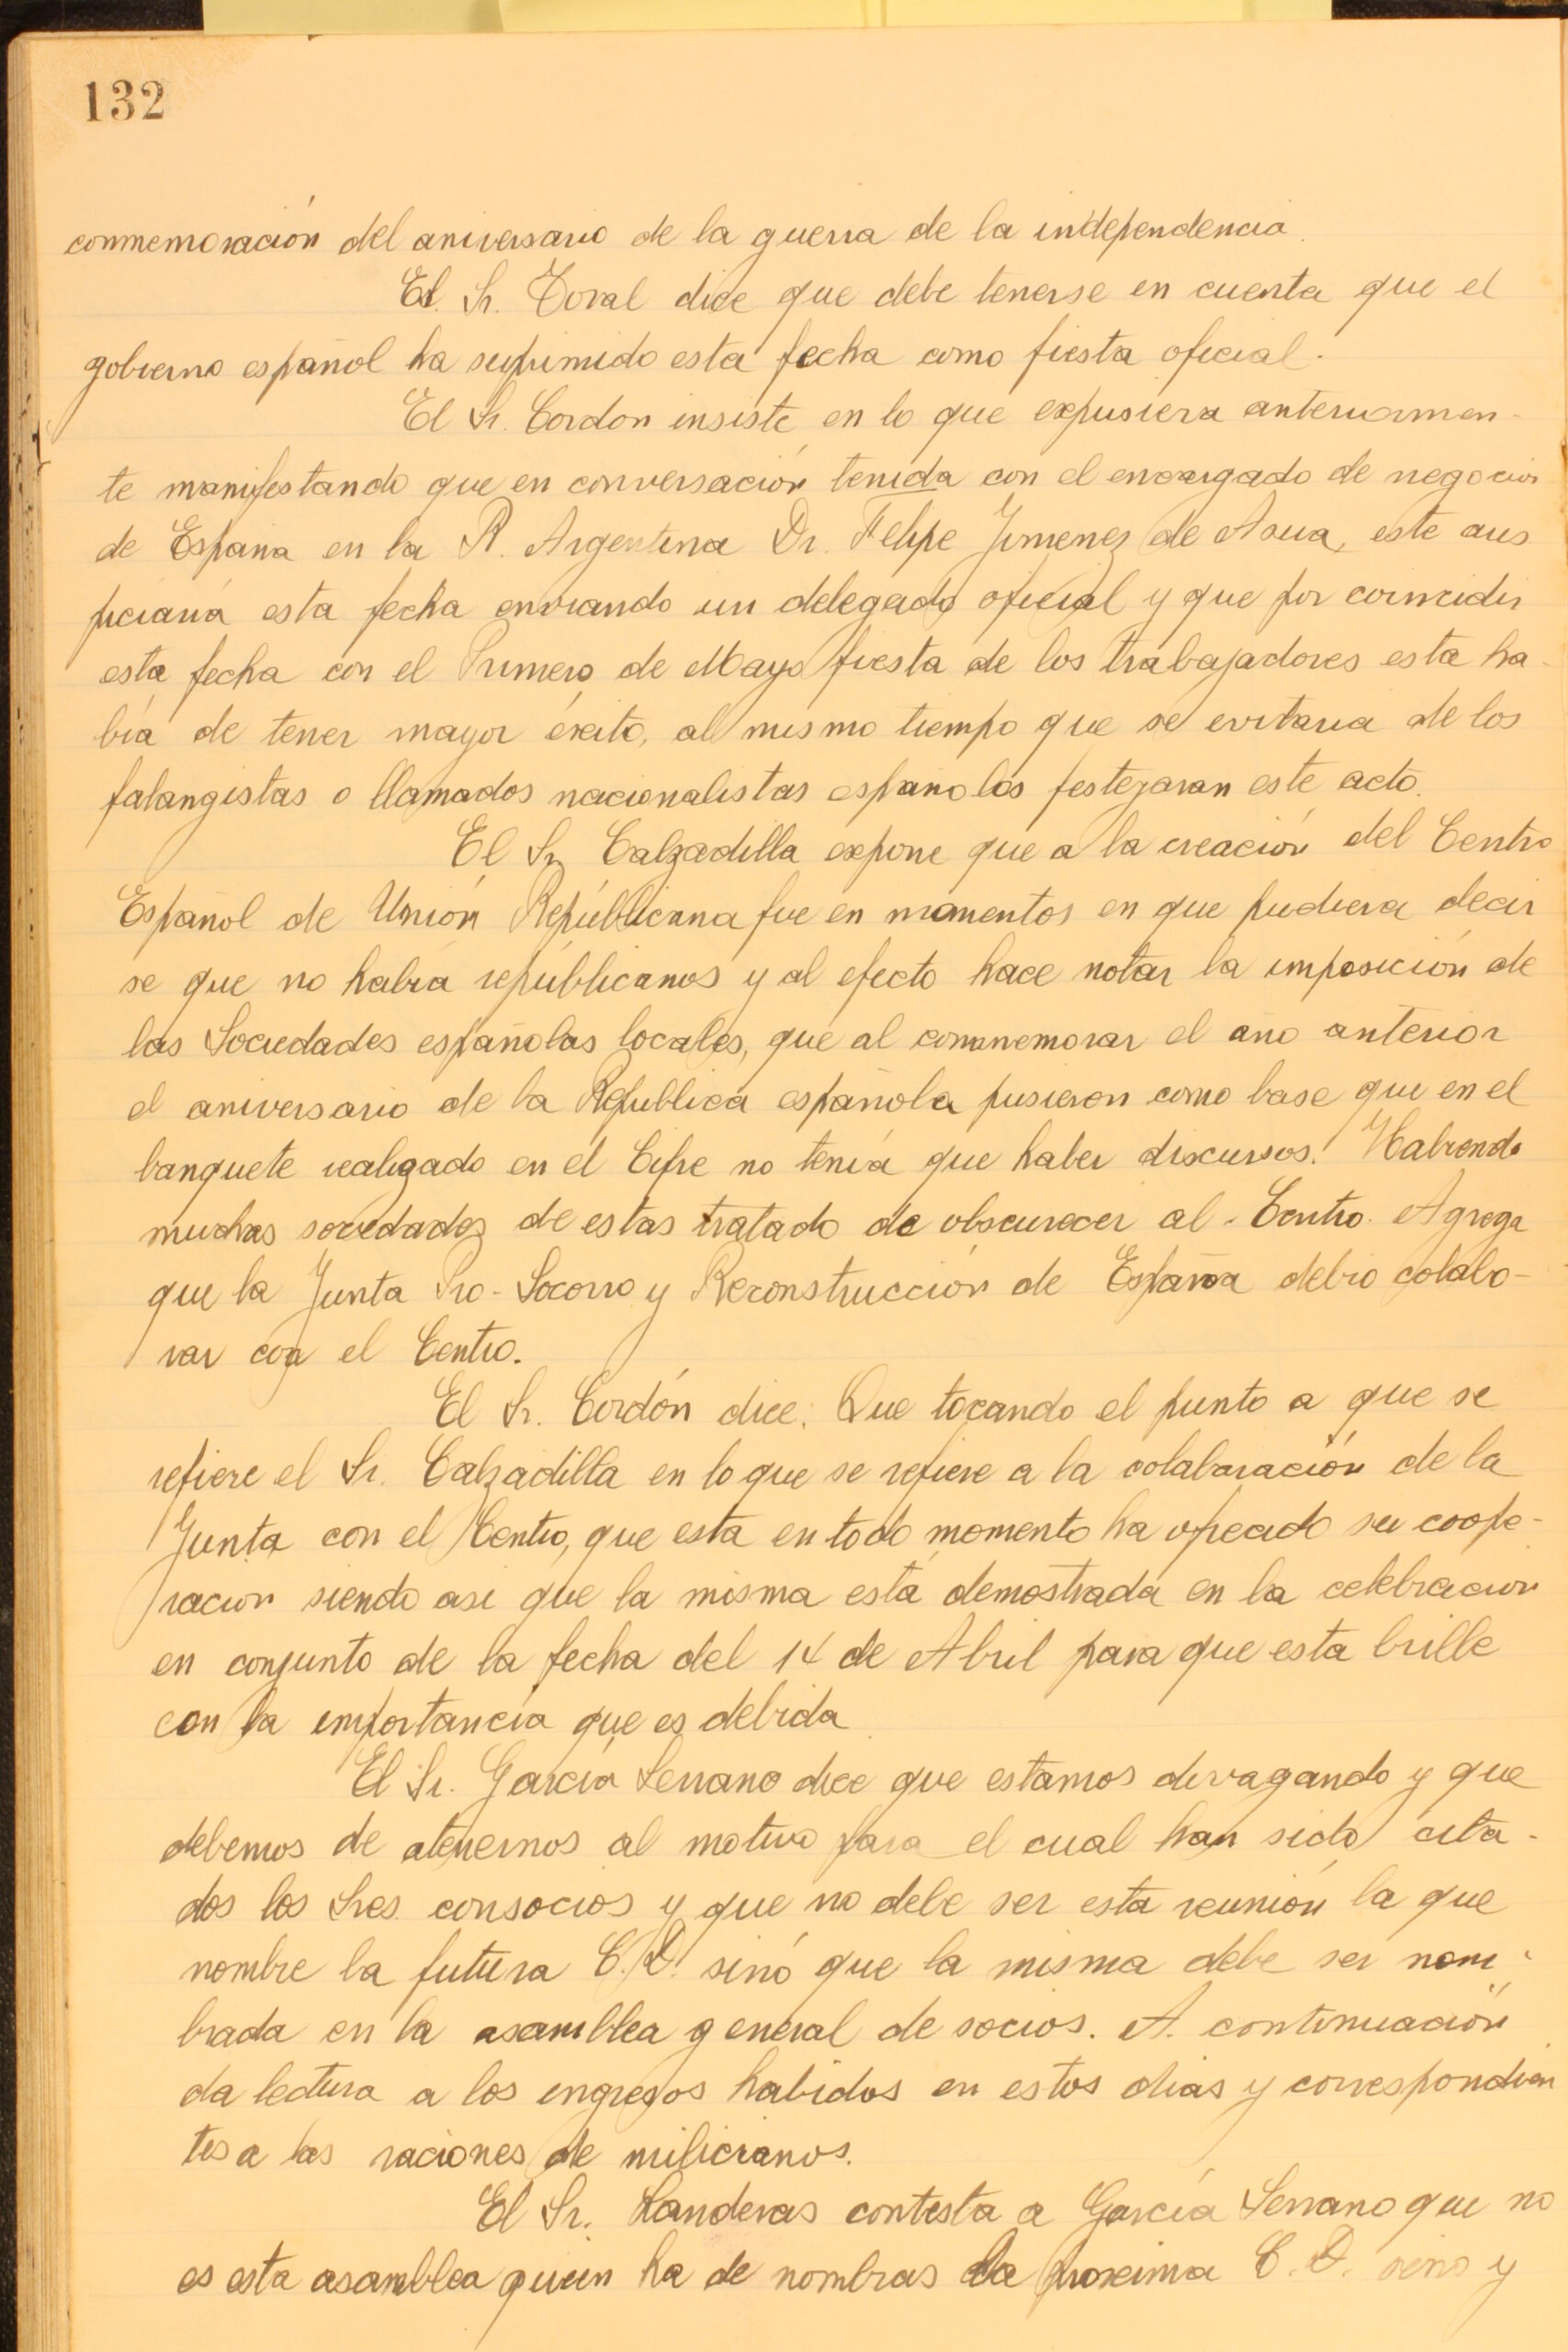 132
conmemoración del aniversario de la guerra de la independencia.
El. Sr. Toral dice que debe tenerse en cuenta que el
gobierno español ha suprimido esta fecha como fiesta oficial.
El Sr. Cordon insiste en lo que expusiera anteriormen-
te manifestando que en conversación tenida con el encargado de negocios
de España en la R. Argentina Dr. Felipe Jimenez de Asua, este aus
piciaría esta fecha enviando un delegado oficial y que por coincidir
esta fecha con el Primero de Mayo fiesta de los trabajadores esta ha-
bía de tener mayor éxito, al mismo tiempo que se evitaria de los
falangistas o llamados nacionalistas españolos festejaran este acto.
El Sr. Calzadilla expone que a la creación del Centro
Español de Unión Repúblicana fue en momentos en que pudiera decir
se que no habia repúblicanos y al efecto hace notar la imposición de
las Sociedades españolas locales, que al conmemorar el año anterior
el aniversario de la Republica española pusieron como base que en el
banquete realizado en el Cifre no tenía que haber discursos. Habiendo
muchas sociedades de estas tratado de obscurecer al Centro. Agrega
que la Junta Pro-Socorro y Reconstrucción de España debio colabo-
rar con el Centro.
El Sr. Cordón dice: Que tocando el punto a que se
refiere el Sr. Calzadilla en lo que se refiere a la colaboración de la
Junta con el Centro, que esta en todo momento ha ofrecido su coope-
racion siendo asi que la misma está demostrada en la celebracion
en conjunto de la fecha del 14 de Abril para que esta brille
con la importancia que es debida
El Sr. García Serrano dice que estamos divagando y que
debemos de atenernos al motivo para el cual han sido cita-
dos los Sres. consocios y que no debe ser esta reunión la que
nombre la futura C.D. sinó que la misma debe ser nom-
brada en la asamblea general de socios. A. continuación
da lectura a los ingresos habidos en estos dias y correspondien
tes a las raciones de milicianos.
El Sr. Landeras contesta a García Serrano que no
es esta asamblea quien ha de nombras la proxima C.D. sino y